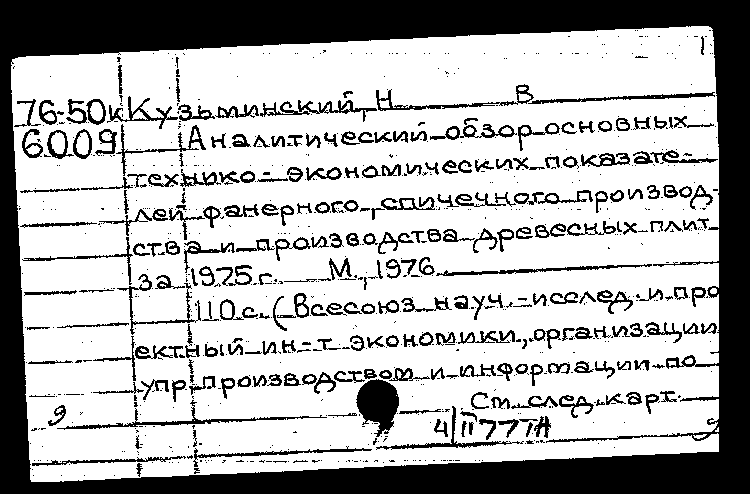 1
76-50к Кузьминский, Н В
6009 Аналитический обзор основных
технико-экономических показате-
лей фанерного, спичечного производ-
ства и производства древесных плит
за 1975 г. М., 1976.
110 с. (Всесоюз. науч.-исслед. и про
ектный ин-т экономики, организации
упр. производством и информации по
См. след. карт.
9
4/II 777А